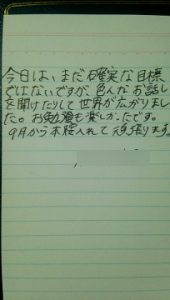 今日は、まだ確実な目標
ではないですが、色んなお話し
を聞けたりして世界が広がりまし
た。お勉強も楽しかったです。
9月から本腰入れて頑張ります。